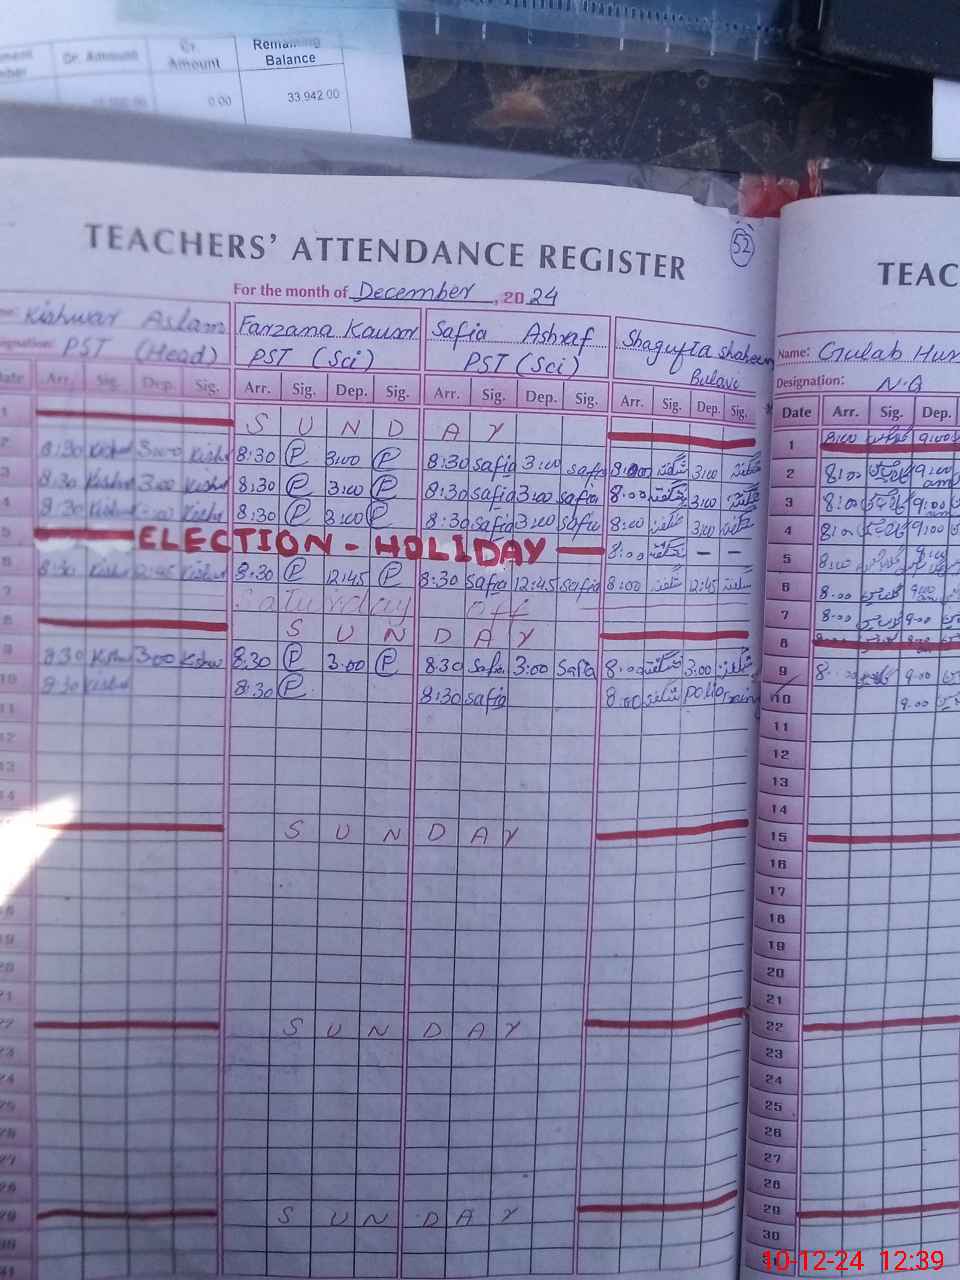 Dr. Amount Cr. Amount Remaining Balance
0.00 33,942.00
52
TEACHERS' ATTENDANCE REGISTER
TEAC
For the month of December, 20 24
Kishwar Aslam Farzana Kausar Safia Ashraf Shagufta Shaheen
PST (Head) PST (Sci) PST (Sci) Bulavi
Name: Gulab Hus
Designation: N.Q
Date Arr. Sig. Dep. Sig. Arr. Sig. Dep. Sig. Arr. Sig. Dep. Sig. Arr. Sig. Dep. Sig. Date Arr. Sig. Dep.
1 S U N D A Y 1 8:00 9:00
2 8:30 Kishw 3:00 Kishw 8:30 P 3:00 P 8:30 Safia 3:00 Safia 8:00 شگفتہ 3:00 شگفتہ 2 8:00 9:00 am
3 8:30 Kishw 3:00 Kishw 8:30 P 3:00 P 8:30 Safia 3:00 Safia 8:00 شگفتہ 3:00 شگفتہ 3 8:00 9:00
4 8:30 Kishw 3:00 Kishw 8:30 P 3:00 P 8:30 Safia 3:00 Safia 8:00 شگفتہ 3:00 شگفتہ 4 8:00 9:00
5 ELECTION - HOLIDAY 8:00 شگفتہ – – 5 8:00
6 8:30 Kishw 12:45 Kishw 8:30 P 12:45 P 8:30 Safia 12:45 Safia 8:00 شگفتہ 12:45 شگفتہ 6 8.00 9:00
7 Saturday off 7 8.00 9.00
8 S U N D A Y 8
9 8:30 Kishw 3:00 Kishw 8:30 P 3:00 P 8:30 Safia 3:00 Safia 8:00 شگفتہ 3:00 شگفتہ 9 8.00 9.00
10 8:30 Kishw 8:30 P 8:30 Safia 8:00 شگفتہ polio 10 9.00
11 11
12 12
13 13
14 14
S U N D A Y 15
16
17
18 18
19 19
20 20
21 21
22 S U N D A Y 22
23 23
24 24
25 25
26 26
27 27
28 28
29 S U N D A Y 29
30 30
31
10-12-24 12:39